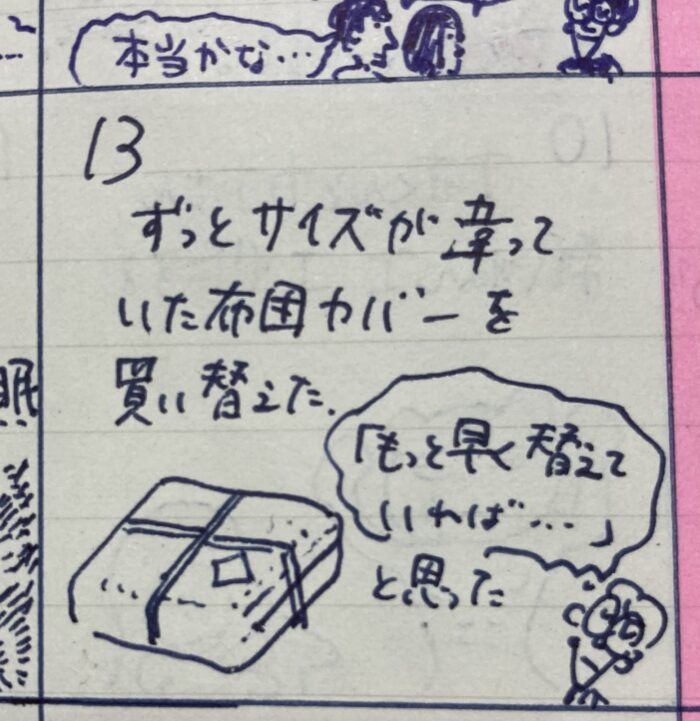 本当かな…
13
ずっとサイズが違って
いた布団カバーを
買い替えた.
眠
「もっと早く替えて
いれば…」
と思った